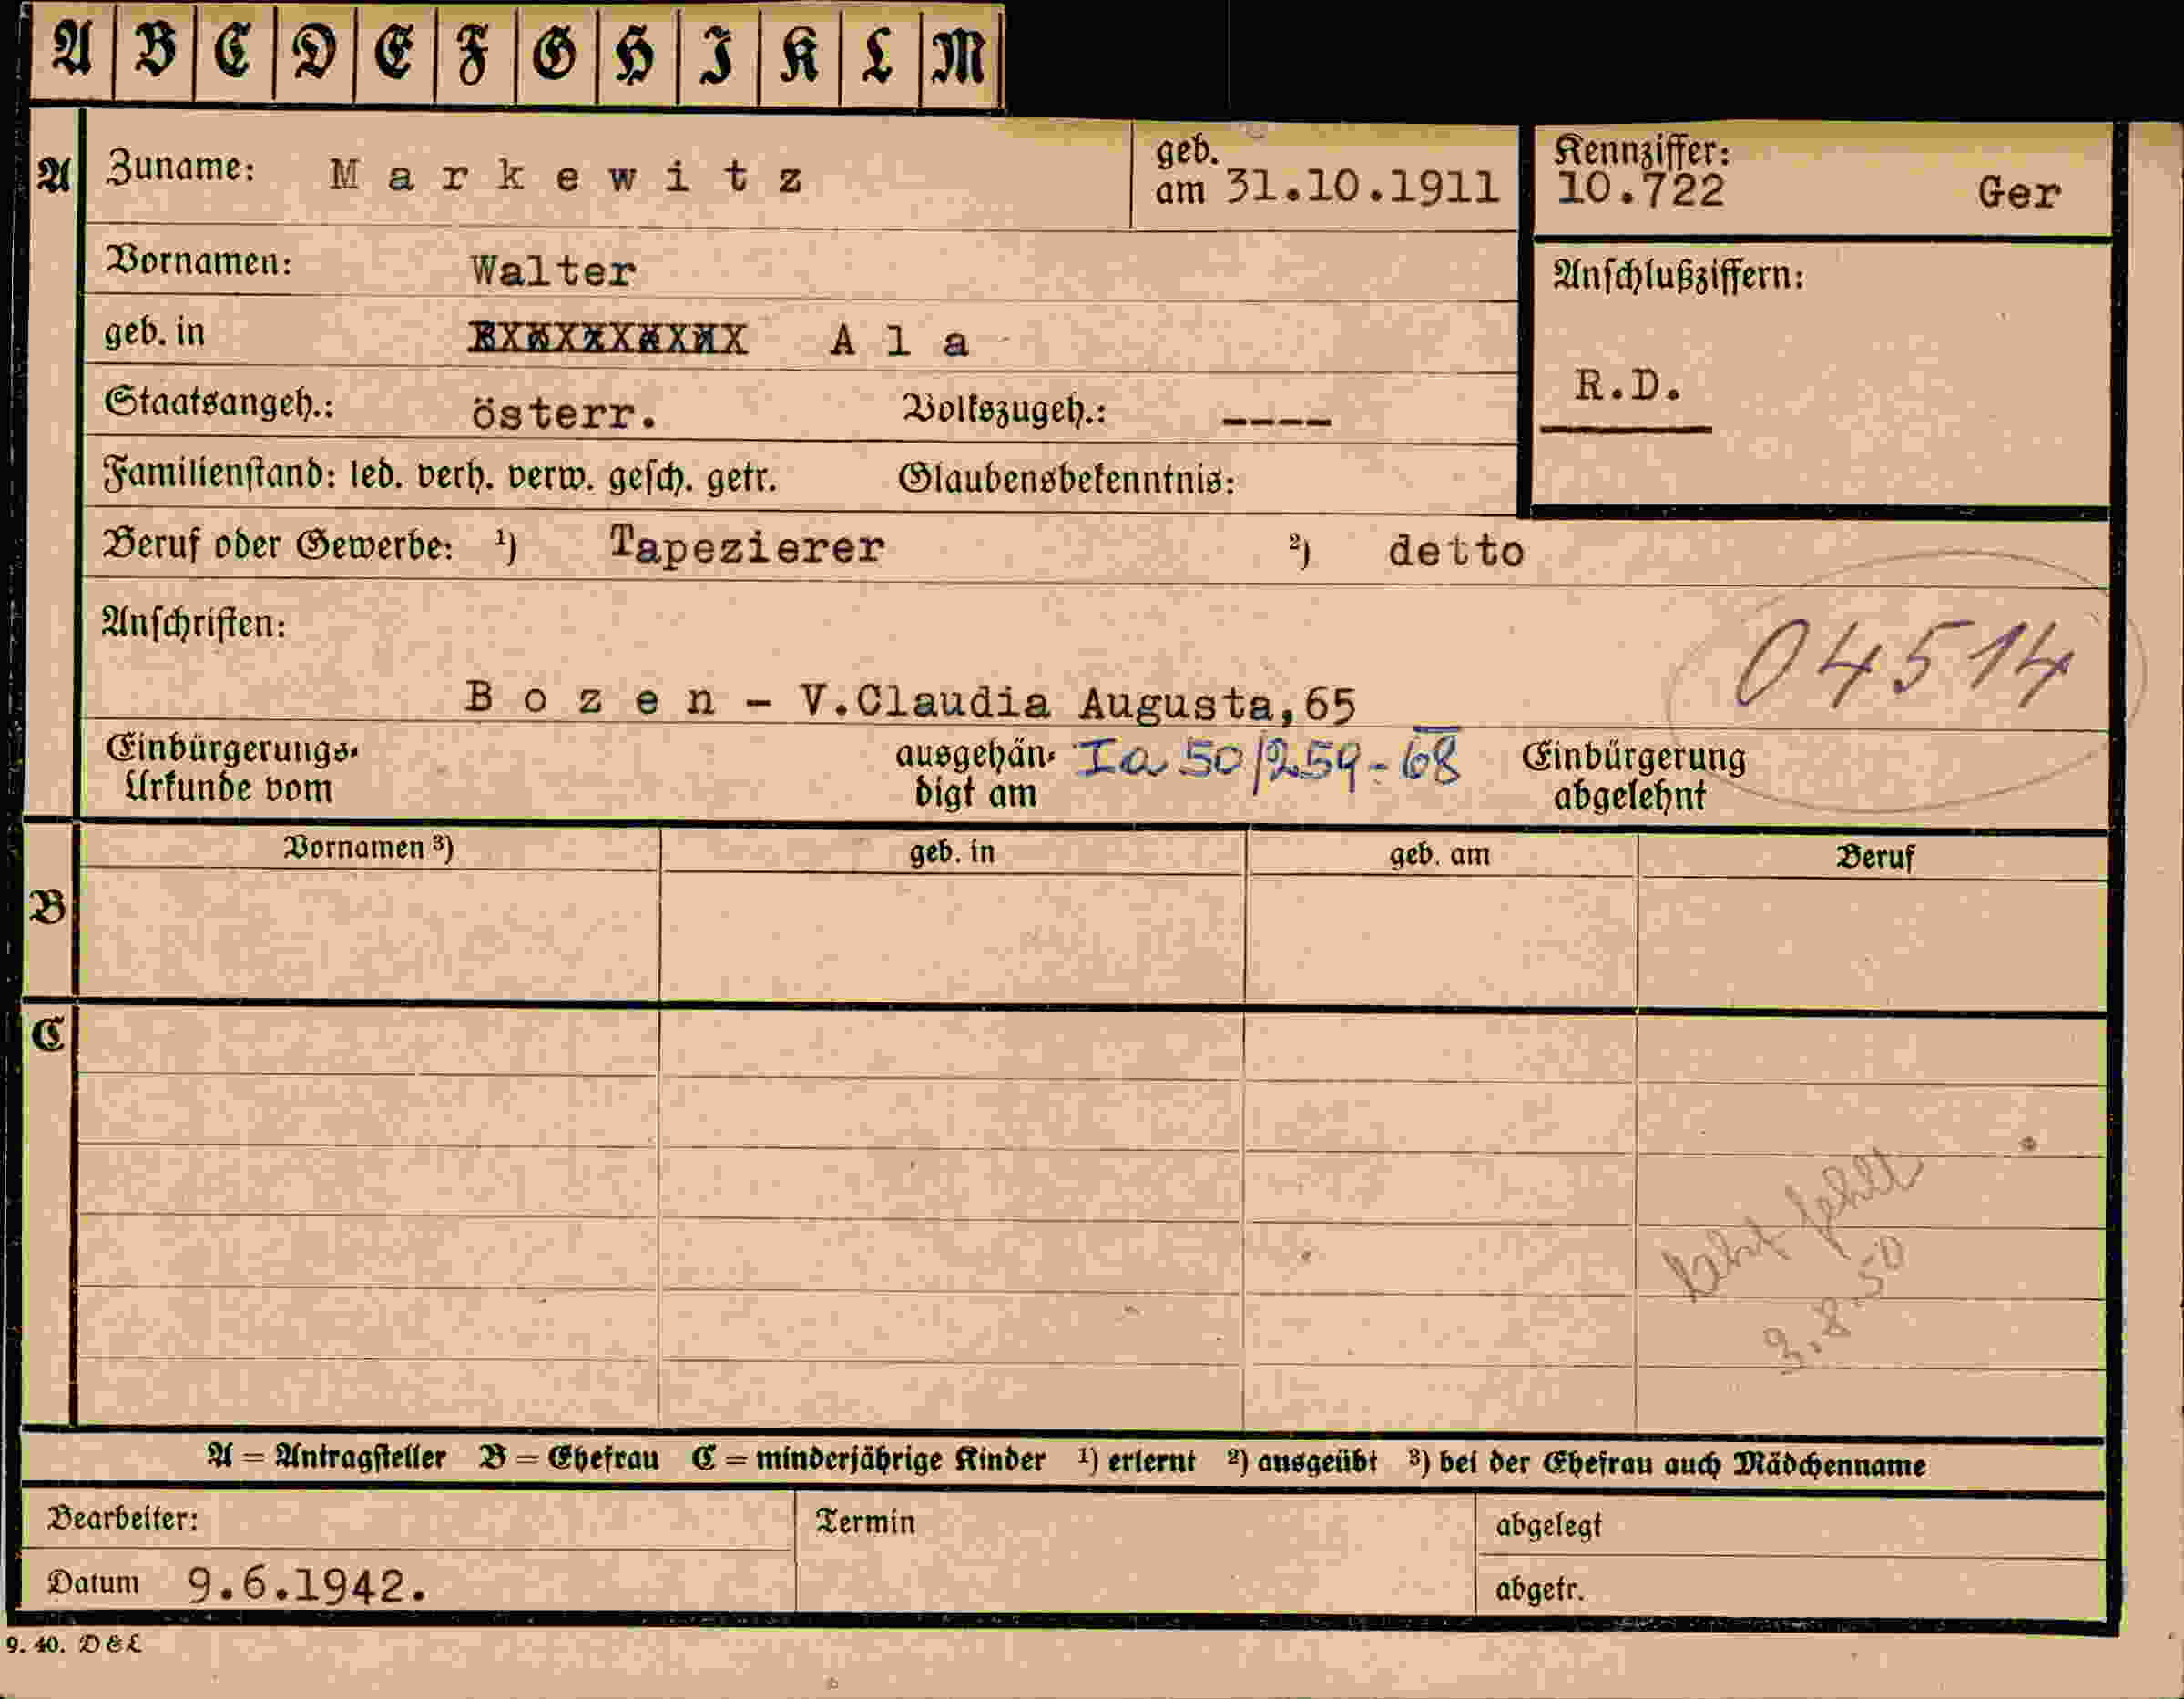 A B C D E F G H I K L M
A Zuname: M a r k e w i t z geb. am 31.10.1911 Kennziffer: 10.722 Ger
Vornamen: Walter Anschlußziffern:
geb. in A l a
R.D.
Staatsangeh.: österr. Volkszugeh.: ----
Familienstand: led. verh. verw. gesch. getr. Glaubensbekenntnis:
Beruf oder Gewerbe: 1) Tapezierer 2) detto
Anschriften:
04514
B o z e n - V.Claudia Augusta,65
Einbürgerungs- ausgehän- Ia 50/259-68 Einbürgerung
Urkunde vom digt am abgelehnt
Vornamen 3) geb. in geb. am Beruf
B
C
fehlt
3.8.50
A = Antragsteller B = Ehefrau C = minderjährige Kinder 1) erlernt 2) ausgeübt 3) bei der Ehefrau auch Mädchenname
Bearbeiter: Termin abgelegt
Datum 9.6.1942. abgetr.
9. 40. D&L